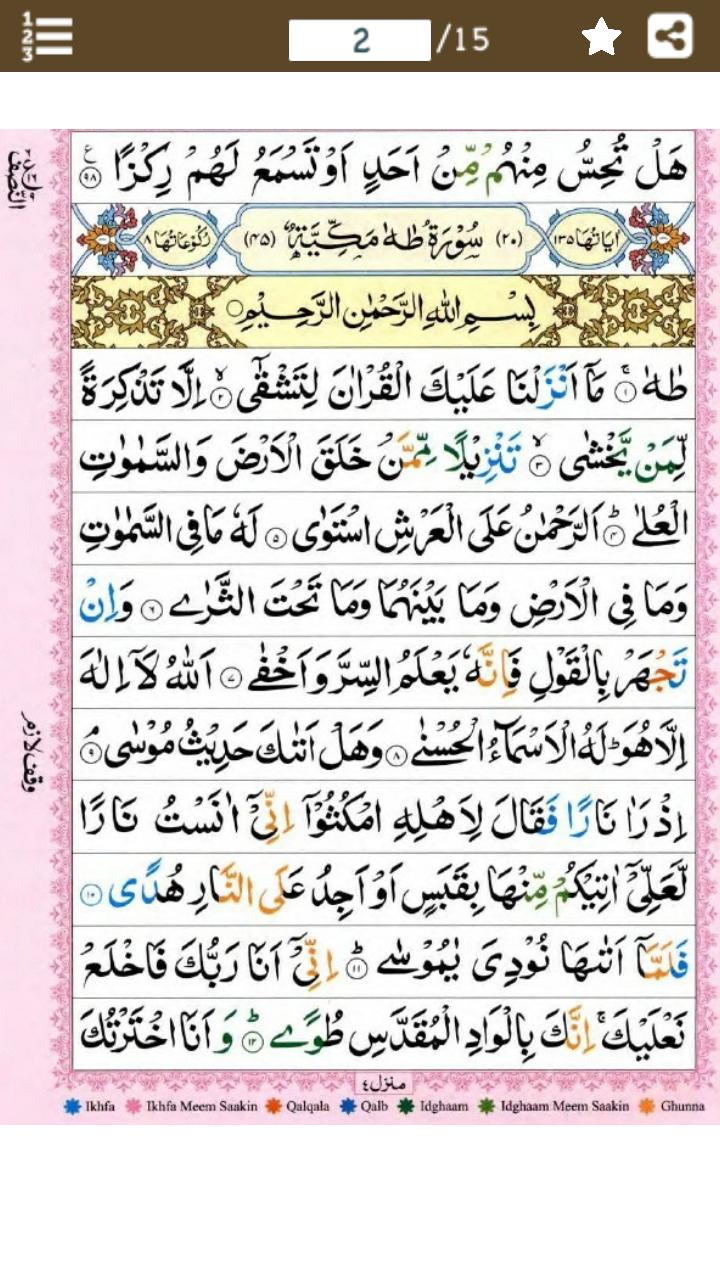 2 /15
ع
هَلْ تُحِسُّ مِنْهُمْ مِّنْ اَحَدٍ اَوْ تَسْمَعُ لَهُمْ رِكْزًا ۹۸
اٰيَاتُهَا ۱۳۵ (۲۰) سُوْرَةُ طٰهٰ مَكِّيَّةٌ (۴۵) رُكُوْعَاتُهَا ۸
بِسْمِ اللّٰهِ الرَّحْمٰنِ الرَّحِيْمِ
طٰهٰ ۚ ۱ مَاۤ اَنْزَلْنَا عَلَيْكَ الْقُرْاٰنَ لِتَشْقٰۤى ۙ ۲ اِلَّا تَذْكِرَةً
لِّمَنْ يَّخْشٰى ۙ ۳ تَنْزِيْلًا مِّمَّنْ خَلَقَ الْاَرْضَ وَالسَّمٰوٰتِ
الْعُلٰى ؕ ۴ اَلرَّحْمٰنُ عَلَى الْعَرْشِ اسْتَوٰى ۵ لَهٗ مَا فِى السَّمٰوٰتِ
وَمَا فِى الْاَرْضِ وَمَا بَيْنَهُمَا وَمَا تَحْتَ الثَّرٰى ۶ وَاِنْ
تَجْهَرْ بِالْقَوْلِ فَاِنَّهٗ يَعْلَمُ السِّرَّ وَاَخْفٰى ۷ اَللّٰهُ لَاۤ اِلٰهَ
اِلَّا هُوَ ؕ لَهُ الْاَسْمَآءُ الْحُسْنٰى ۸ وَهَلْ اَتٰىكَ حَدِيْثُ مُوْسٰى ۘ ۹
اِذْ رَاٰ نَارًا فَقَالَ لِاَهْلِهِ امْكُثُوْۤا اِنِّىْۤ اٰنَسْتُ نَارًا
لَّعَلِّىْۤ اٰتِيْكُمْ مِّنْهَا بِقَبَسٍ اَوْ اَجِدُ عَلَى النَّارِ هُدًى ۱۰
فَلَمَّاۤ اَتٰىهَا نُوْدِىَ يٰمُوْسٰى ؕ ۱۱ اِنِّىْۤ اَنَا رَبُّكَ فَاخْلَعْ
نَعْلَيْكَ ۚ اِنَّكَ بِالْوَادِ الْمُقَدَّسِ طُوًى ؕ ۱۲ وَاَنَا اخْتَرْتُكَ
وقف لازم
منزل۴
Ikhfa Ikhfa Meem Saakin Qalqala Qalb Idghaam Idghaam Meem Saakin Ghunna